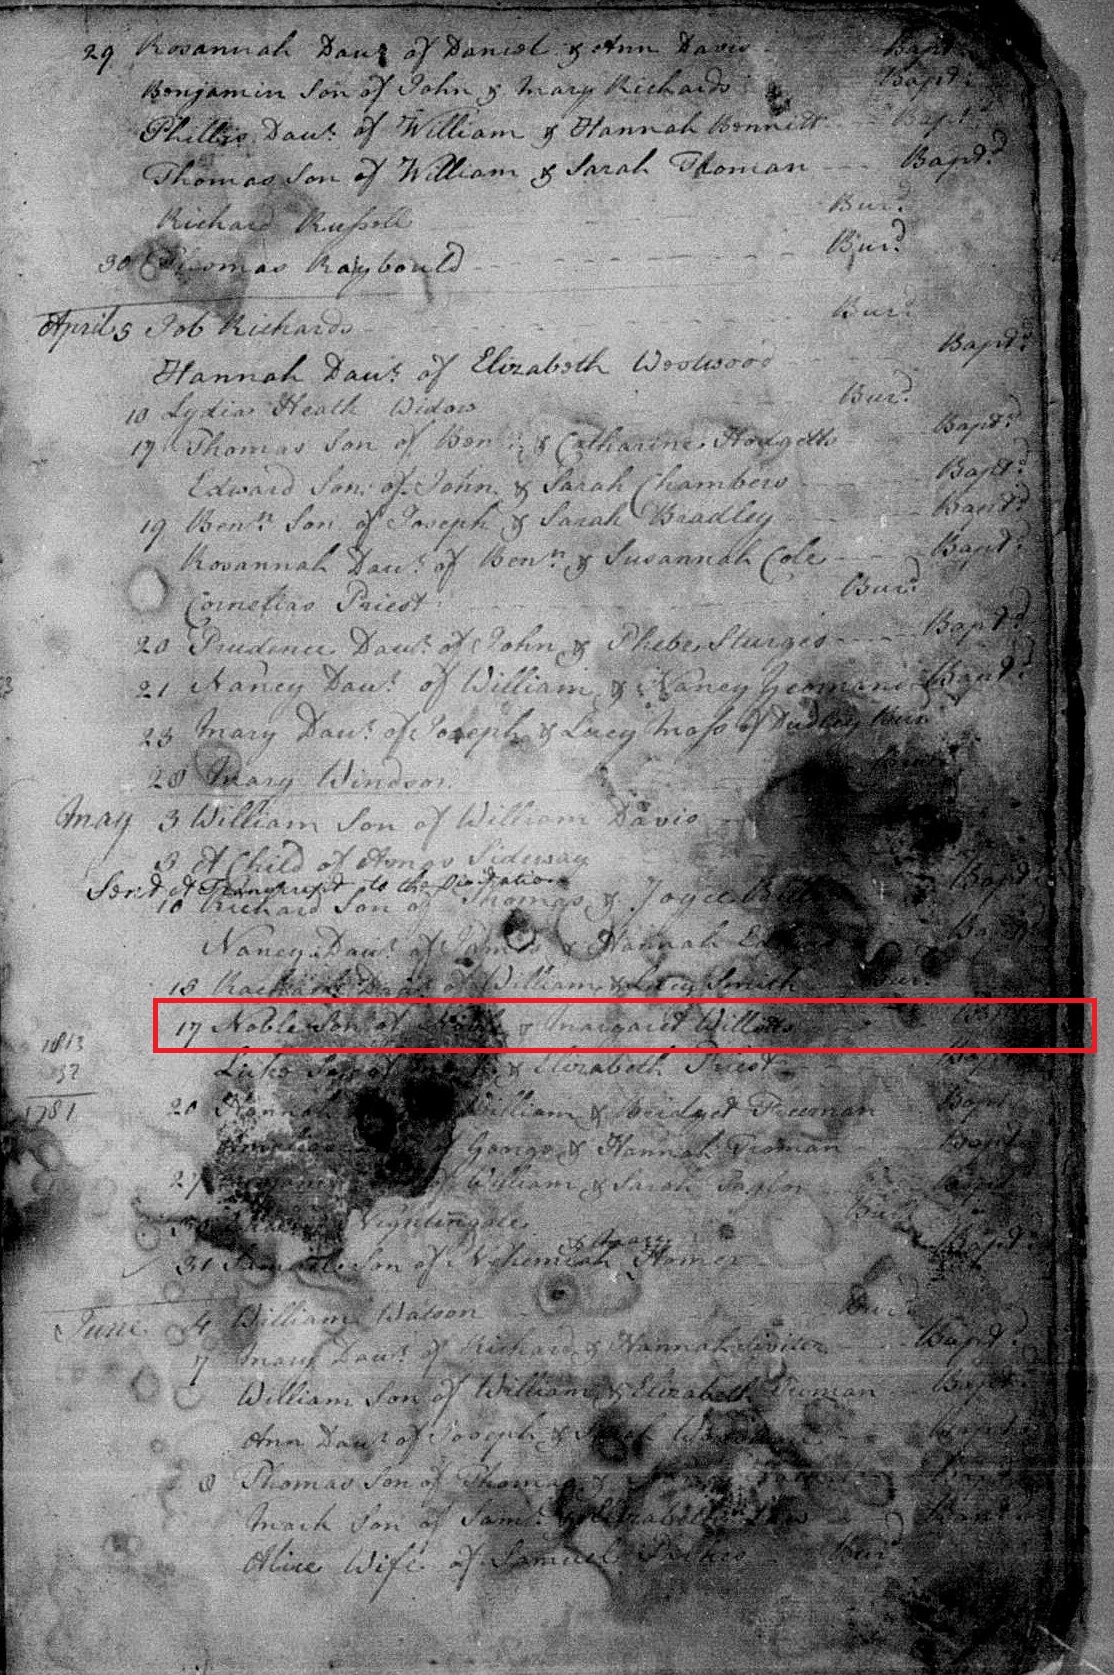 29 Rosannah Daur of Daniel & Ann Davis Bapd
Benjamin Son of John & Mary Richards Bapd.
Phillis Daur. of William & Hannah Bennitt Bapd
Thomas Son of William & Sarah Floman Bapd.
Richard Russell Burd
30 Thomas Raybould Burd
April 5 Job Richards Burd
Hannah Daur. of Elizabeth Westwood Bapd.
10 Lydia Heath Widow Burd
17 Thomas Son of Benn. & Catharine Hodgetts Bapd.
Edward Son of John & Sarah Chambers Bapd.
19 Benn. Son of Joseph & Sarah Bradley Bapd.
Rosannah Daur. of Benn. & Susannah Cole Bapd.
Cornelias Priest Burd
20 Prudence Daur. of John & Phebe Sturges Bapd.
21 Nancy Daur. of William & Nancy Bapd.
23 Mary Daur. of Joseph & Lucy Moss of Dudley Bur
28 Mary Windsor
May 3 William Son of William Davis
A Child of Amos Sideway
Sent A Transcript to the Visitation
10 Richard Son of Thomas & Joyce Bapd
Nancy Daur. of James & Hannah
of William & Lucy Smith Bur.
17 Noble Son of Noble & Margaret Willetts Bapd
1813
Luke Son of & Elizabeth Priest Bap
32
1781
20 Hannah William & Bridget Freeman Bapd
of George & Hannah Bapd
27 of William & Sarah Taylor Bapd
Nightingale Bur
& Mary
31 Son of Nehemiah Homer Bapd
June 4 William Watson Burd
7 Mary Daur. of Richard & Hannah Bapd.
William Son of William & Elizabeth Bapd
Ann Daur of Joseph & Sarah
8 Thomas Son of Thomas &
Mark Son of Saml. & Elizabeth Bapd
Alice Wife of Samuel Burd